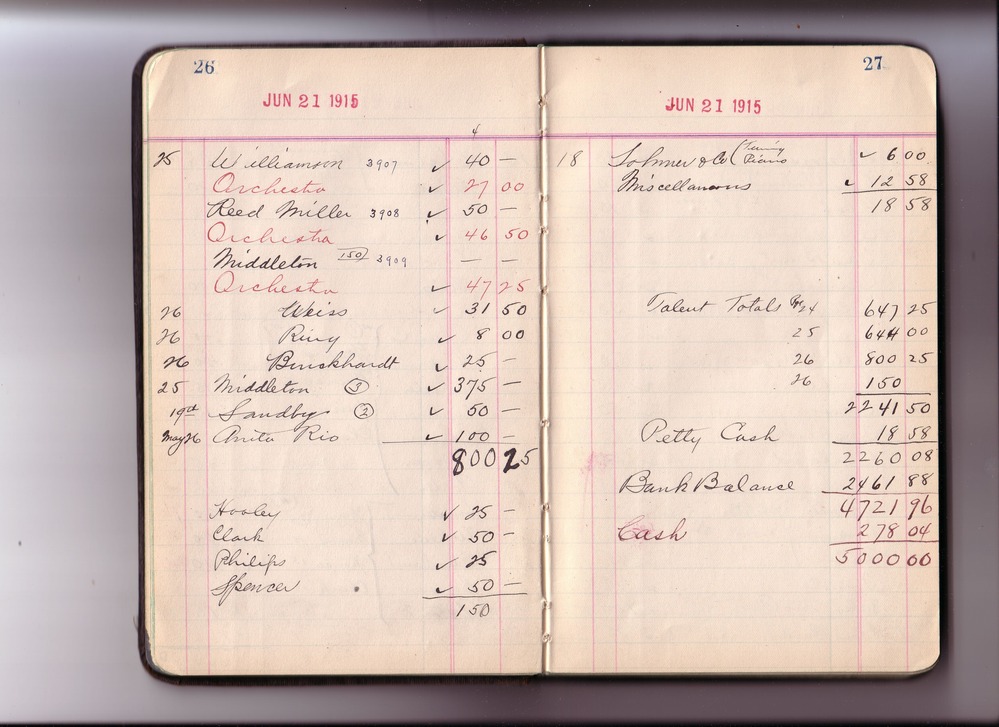 26
JUN 21 1915
4
25 Williamson 3907 ✓ 40 —
Orchestra ✓ 27 00
Reed Miller 3908 ✓ 50 —
Orchestra ✓ 46 50
Middleton 150 3909 — —
Orchestra ✓ 47 25
26 Weiss ✓ 31 50
26 Ring ✓ 8 00
26 Burckhardt ✓ 25 —
25 Middleton ③ ✓ 375 —
19th Sandby ② ✓ 50 —
May 26 Anita Rio ✓ 100 —
800 25
Hooley ✓ 25 —
Clark ✓ 50 —
Philips ✓ 25
Spencer ✓ 50 —
150
27
JUN 21 1915
18 Sohmer & Co (Tuning Piano ✓ 6 00
Miscellaneous ✓ 12 58
18 58
Talent Totals Pg 24 647 25
25 644 00
26 800 25
26 150
2241 50
Petty Cash 18 58
2260 08
Bank Balance 2461 88
4721 96
Cash 278 04
5000 00